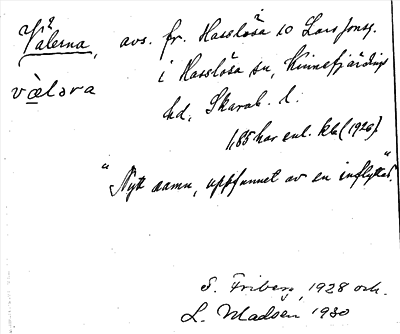 Välerna, avs. fr. Hasslösa 10 Lars Jonsg.
i Hasslösa sn, Kinnefjärdings
vä̀lǝra
hd, Skarab. l.
1,85 har enl. kb (1926).
"Nytt namn, uppfunnet av en inflyttad".
S. Friberg, 1928 och
L. Madsen 1930